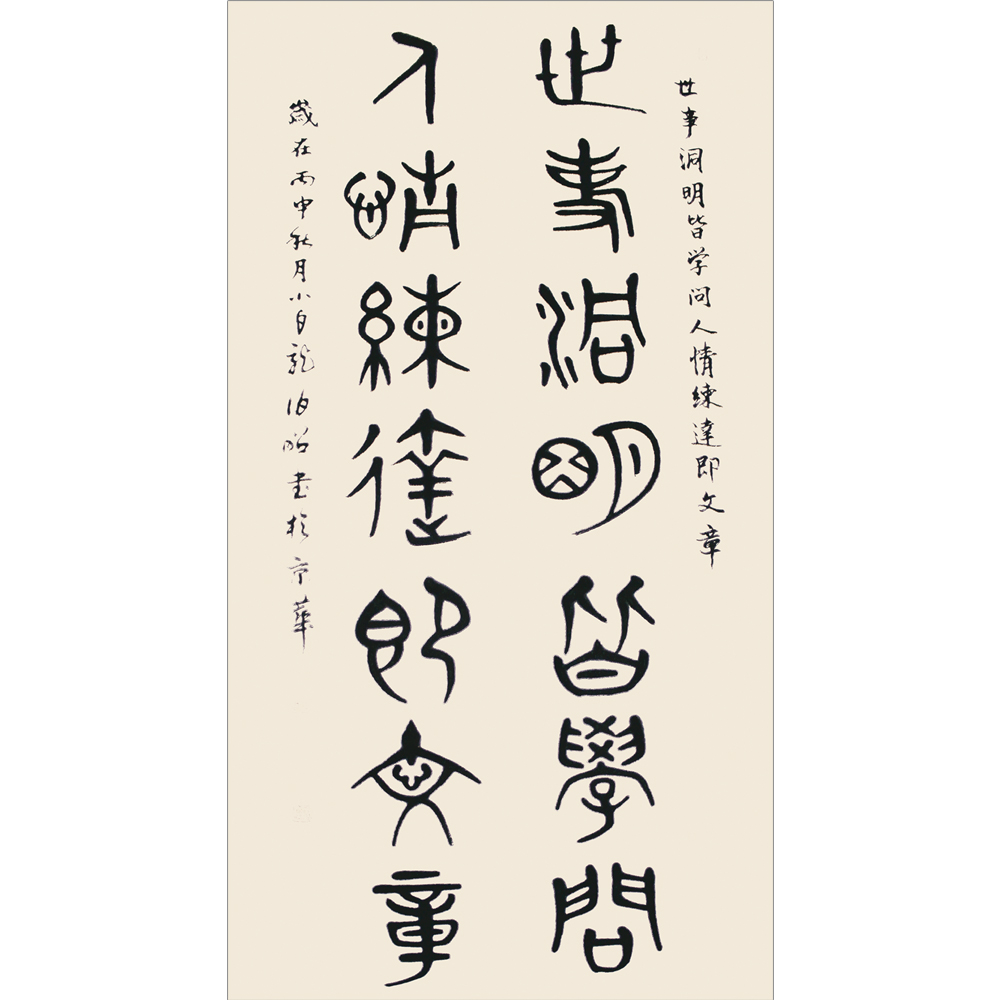 世事洞明皆学问人情練達即文章
世事洞明皆學問
人情練達即文章
歲在丙申秋月小白龍伯昭書於京華